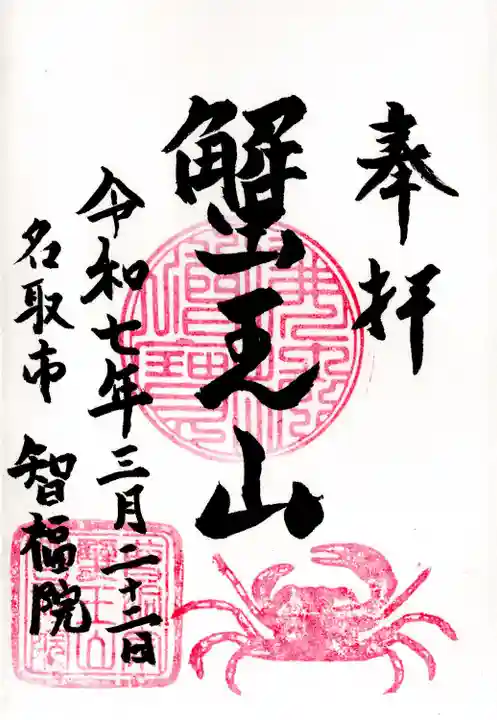 奉拝
蟹王山
令和七年三月二十二日
名取市 智福院